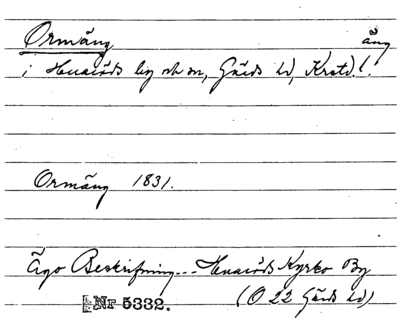 Ormäng äng
i Hvairöds by och sn, Gärds hd, Krstd. l.
Ormäng 1831.
Ägo Beskrifning... Hvairöds Kyrko By
Nr 5332. (O 22 Gärds hd)